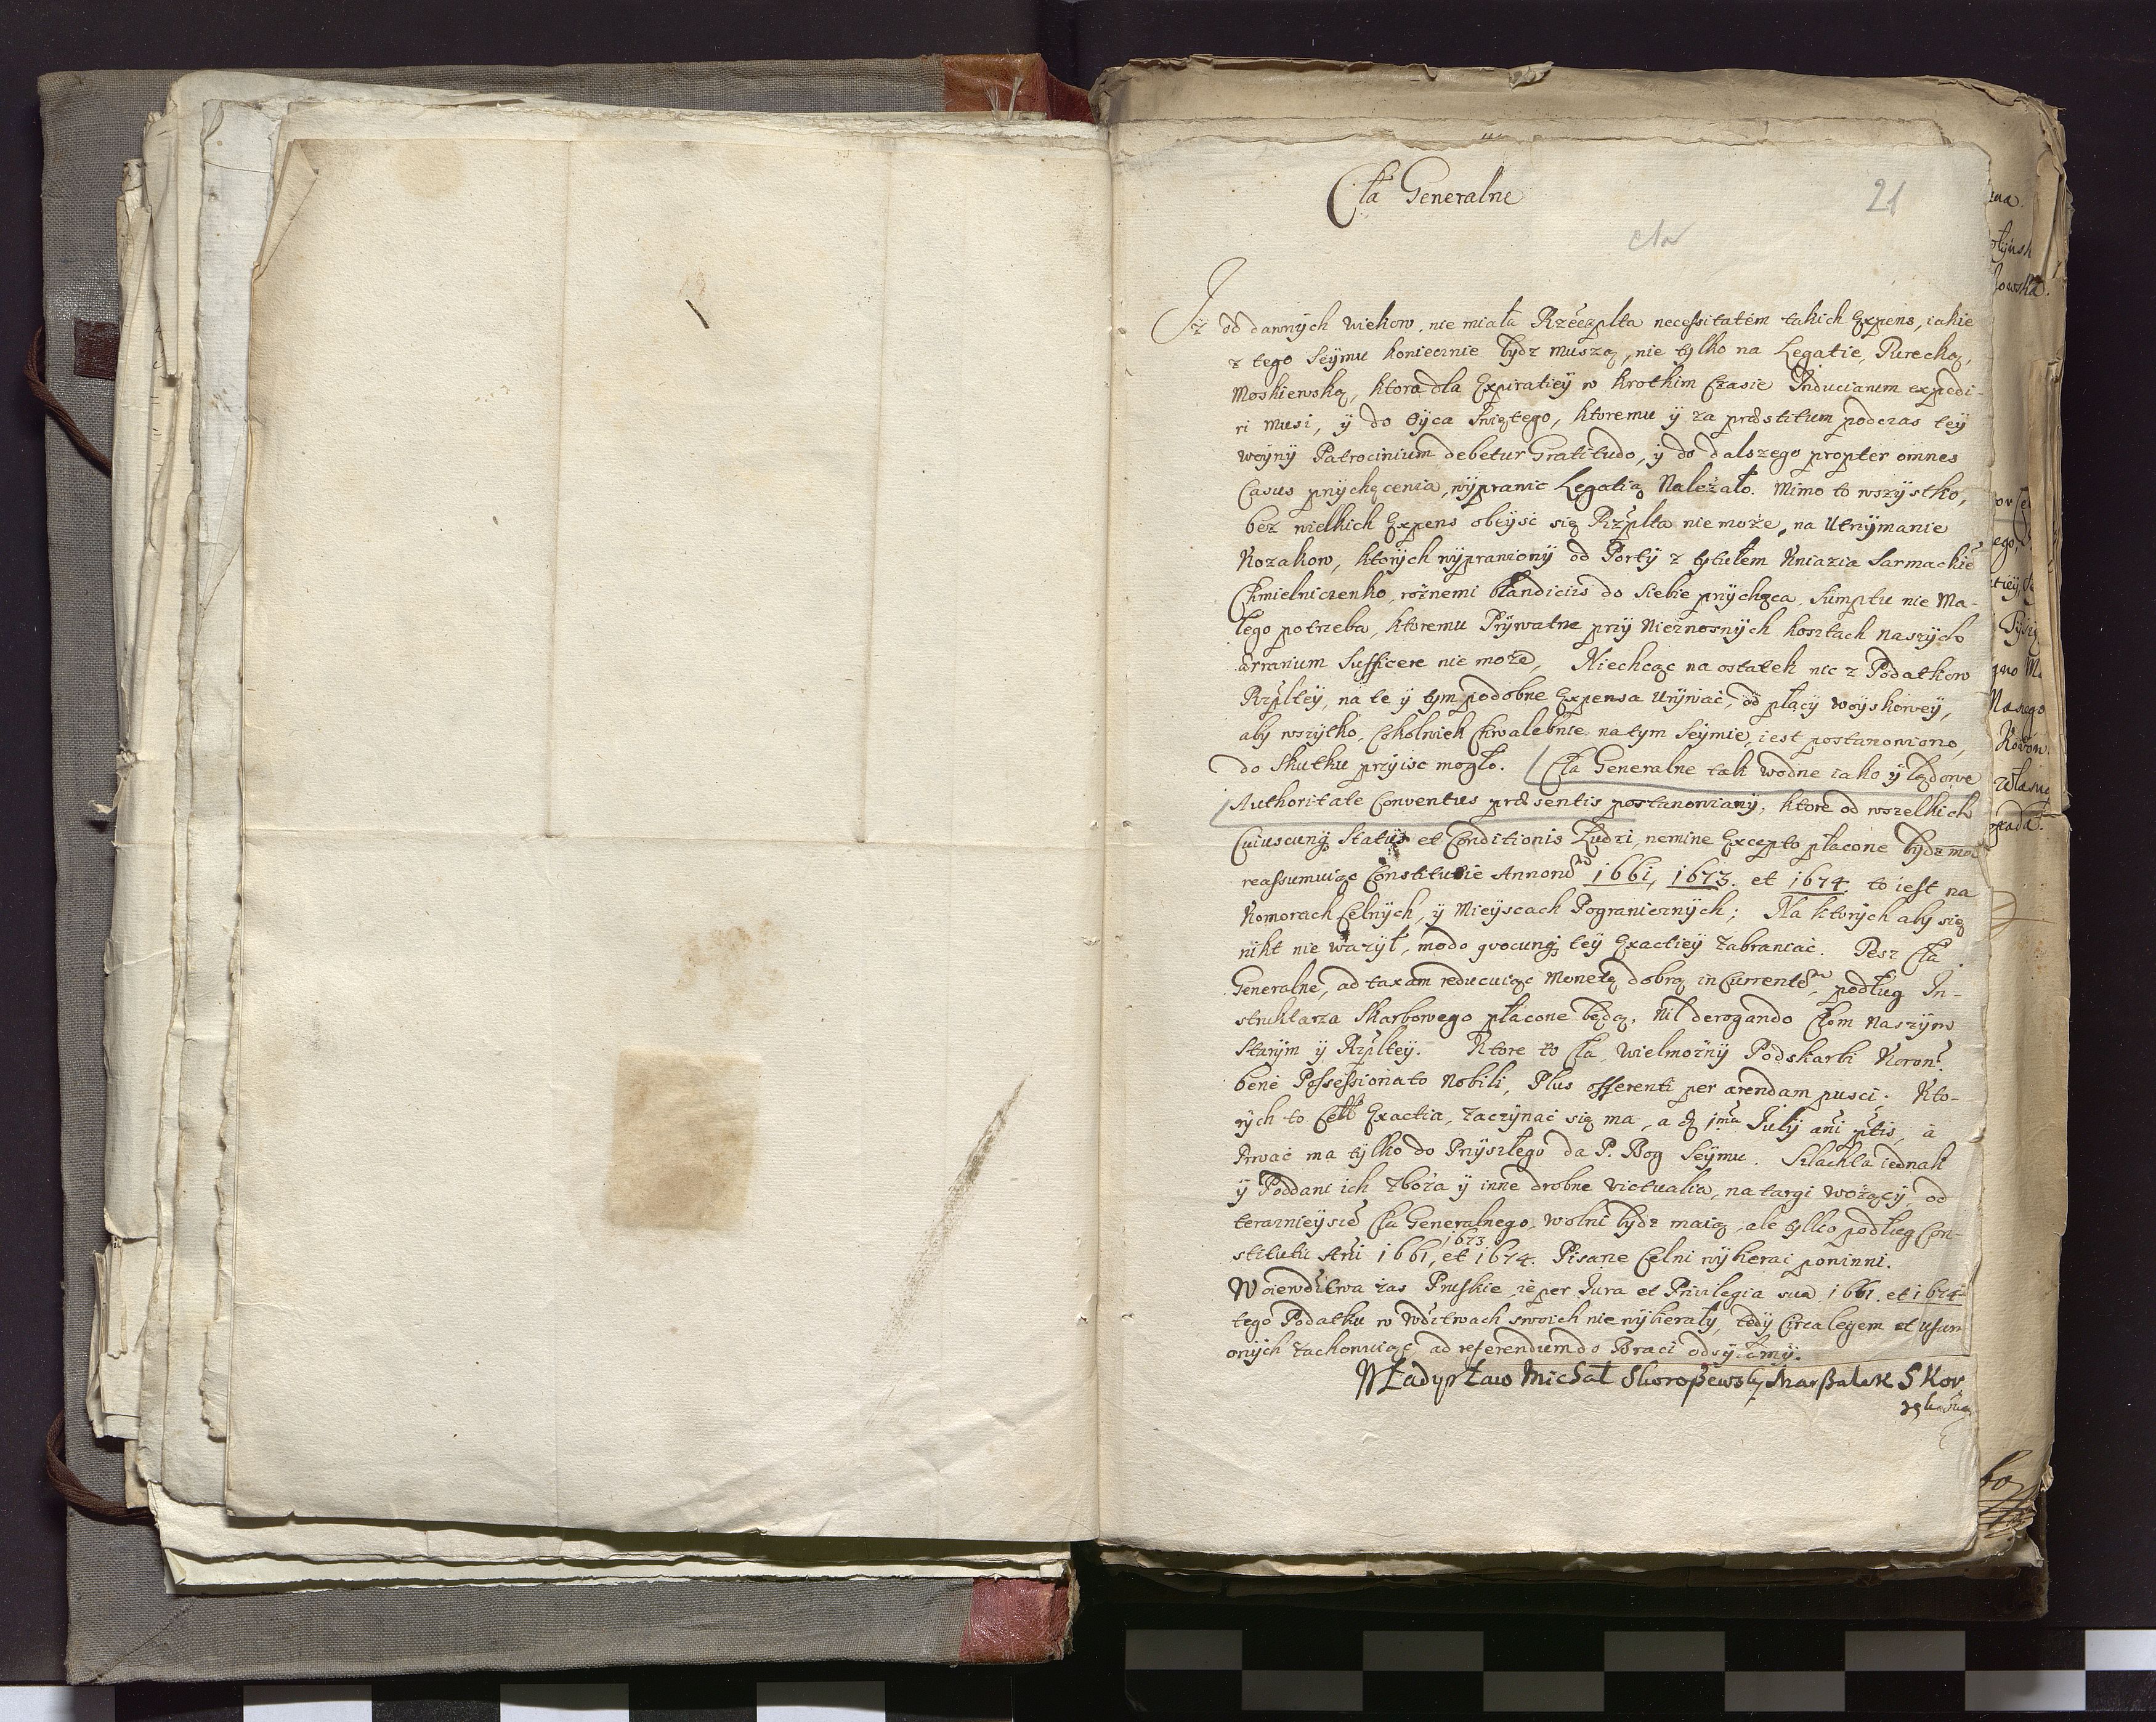 Cła Generalne
21
cła
Iż od dawnych wiekow, nie miała Rzeczplta necessitatem takich Expens, iakie
z tego Seymu koniecznie bydz muszą, nie tylko na Legatie, Turecką,
Moskiewską, ktora dla Expiratiey w krotkim Czasie Induciarum expedi-
ri musi, y do Oyca Swiętego, ktoremu y za præstitum podczas tey
woyny Patrocinium debetur Gratitudo, y do dalszego propter omnes
Casus przychęcenia, wyprawic Legatią Nalezało. Mimo to wszystko,
bez wielkich Expens obeysć się Rzplta nie może, na Utrzymanie
Kozakow, ktorych wyprawiony od Porty z tytułem Kniazia Sarmackie
Chmielniczenko, rożnemi blandiciis do siebie przychęca, Sumptu nie Ma-
łego potrzeba, ktoremu Prywatne przy Nieznosnych kosztach naszych
ærarium Sufficere nie może, Niechcąc na ostatek nic z Podatkow
Rzpltey, na te y tym podobne Expensa Urywać, od płacy woyskowey,
aby wszytko, Cokolwiek Chwalebnie na tym Seymie, iest postanowiono,
do Skutku przyisc mogło. Cła Generalne tak wodne iako y lądowe
Authoritate Conventus præsentis postanowiamy, ktore od wszelkich
Cuiuscunq Status et Conditionis Ludzi, nemine Excepto płacone bydz maią
reassumuiąc Constitutie Annorũ 1661, 1673. et 1674. to iest na
Komorach Celnych, y Mieyscach Pogranicznych; Na ktorych aby się
nikt nie wazył, modo quocunq tey Exactiey zabraniac. Też Cła
Generalne, ad taxam reducuiąc Monetę dobrą in Currentẽ, podług In-
struktarza Skarbowego płacone będą, nil derogando Cłom Naszym
Starym y Rzpltey. Ktore to Cła, Wielmożny Podskarbi Koron.
bene Possessionato Nobili, Plus offerenti per arendam pusci. Kto-
rych to Ceł Exactia, zaczynać się ma, a 1ma July ani ptis, a
trwać ma tylko do Przyszłego da P. Bog Seymu. Szlachta iednak
y Poddani ich zboża y inne drobne victualia, na targi wożący, od
teraznieysze Cła Generalnego, wolni bydz maią, ale tylko podług Con-
1673
stitutii Ani 1661, et 1674. Pisarze Celni wybierać powinni.
Woiewdztwa zas Pruskie, że per Jura et Privilegia sua 1661. et 1674
tego Podatku w Wdztwach swoich nie wybierały, tedy Circa legem et usum
onych zachowuiąc, ad referendum do Braci odsyłamy.
Władysław Michał Skoroszewsky Marszałek S Kor